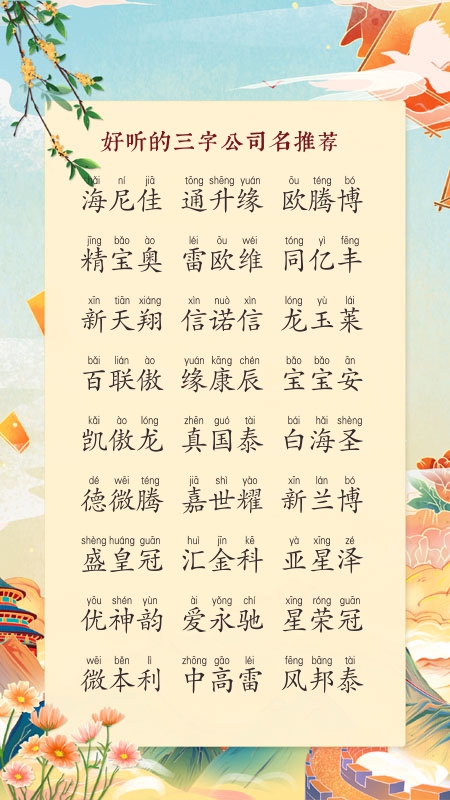 好听的三字公司名推荐
hǎi ní jiā tōng shēng yuán ōu téng bó
海尼佳 通升缘 欧腾博
jīng bǎo ào léi ōu wéi tóng yì fēng
精宝奥 雷欧维 同亿丰
xīn tiān xiáng xìn nuò xìn lóng yù lái
新天翔 信诺信 龙玉莱
bǎi lián ào yuán kāng chén bǎo bǎo ān
百联傲 缘康辰 宝宝安
kǎi ào lóng zhēn guó tài bái hǎi shèng
凯傲龙 真国泰 白海圣
dé wēi téng jiā shì yào xīn lán bó
德微腾 嘉世耀 新兰博
shèng huáng guān huì jīn kē yà xīng zé
盛皇冠 汇金科 亚星泽
yōu shén yùn ài yǒng chí xīng róng guān
优神韵 爱永驰 星荣冠
wēi běn lì zhōng gāo léi fēng bāng tài
微本利 中高雷 风邦泰